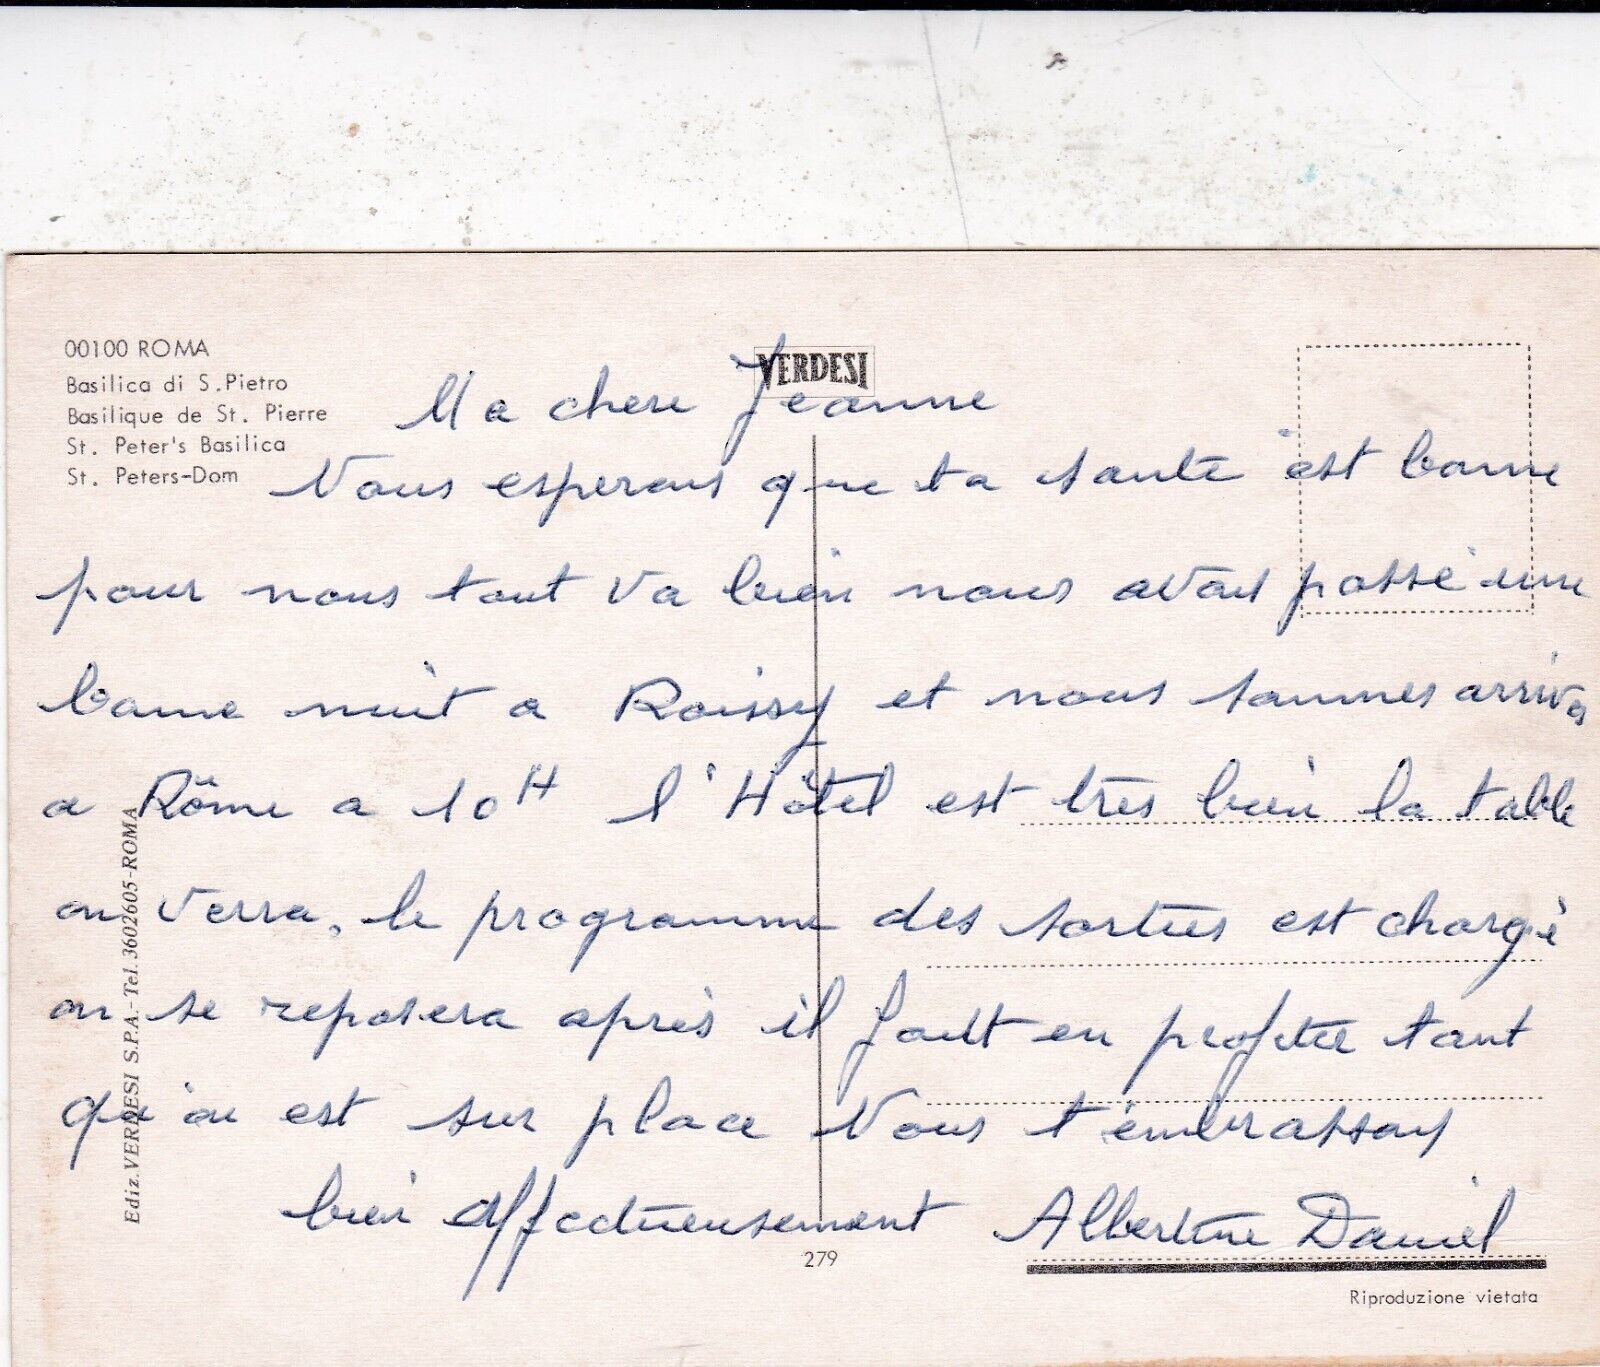 00100 ROMA
Basilica di S. Pietro
Basilique de St. Pierre
St. Peter's Basilica
St. Peters-Dom
VERDESI
Ma chere Jeanne
Nous esperons que ta santé est bonne
pour nous tout va bien nous avons passé une
bonne nuit a Roissy et nous sommes arrivés
a Rôme a 10H l'Hôtel est très bien la table
on verra, le programme des sorties est chargé
on se reposera après il fault en profiter tant
qu'on est sur place Nous t'embrassons
bien affectueusement Albertine Daniel
Ediz. VERDESI S.P.A. - Tel. 3602605 - ROMA
279
Riproduzione vietata